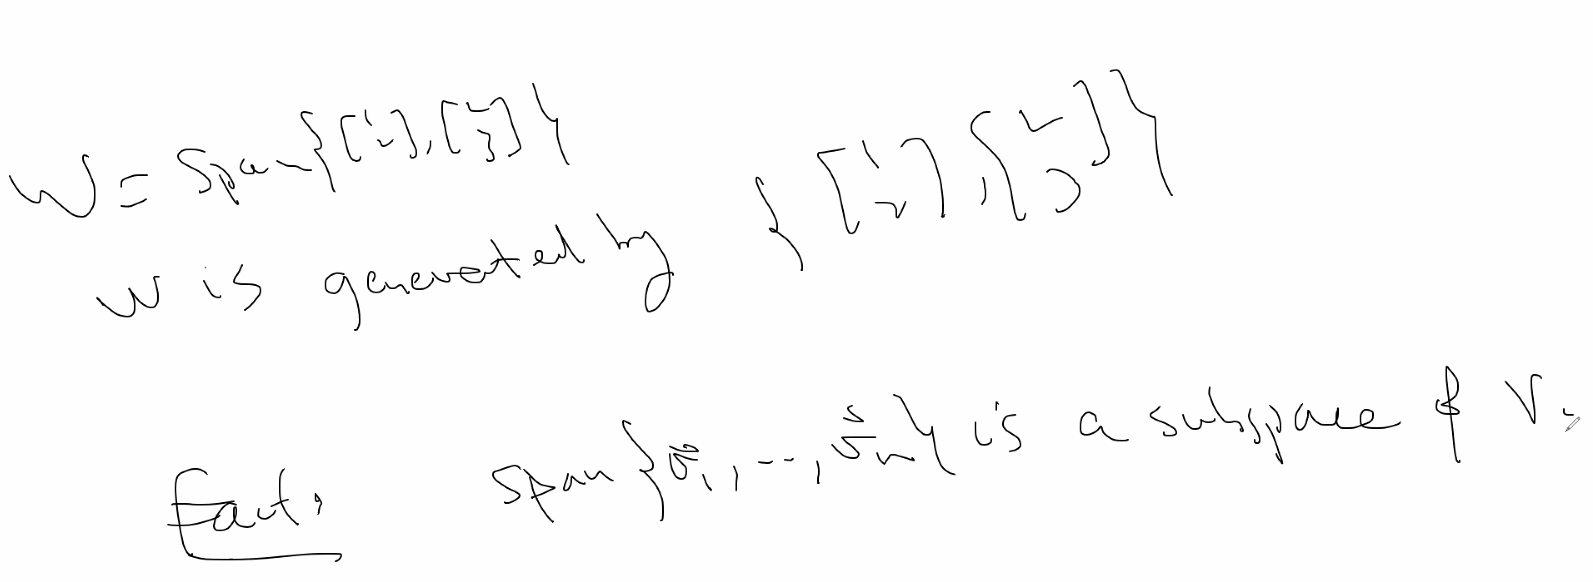 W = Span{[1 2], [2 3]}
W is generated by {[1 2], [2 3]}
Fact: span{v⃗₁, ..., v⃗ₙ} is a subspace of V.